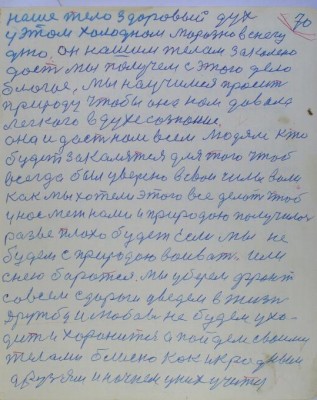 наше тело здоровый дух 70
у этом холодном
дуло. он нашим телам закалко
даст мы получем с этого дело
благое, мы научимся просит
природу чтобы она нам давала
легкого в духе сознание.
она и даст нам всем людям кто
будет закалятся для того чтоб
всегда был уверено в свои силы воли
как мы хотели этого все делат чтоб
у нас меж нами и природою получилос
разве плохо будет если мы не
будем с природою воеват. или
с нею боротся. мы уберем фронт
совсем с дороги уведем в жизн
дружбу и любов не будем ухо-
дит и хоронится а пойдем своими
телами близко как и к родным
друзям и начнем у них учитц